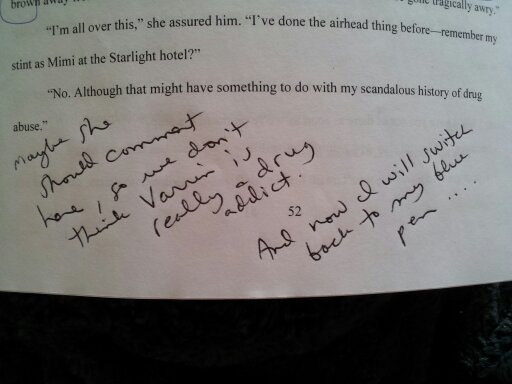 brown away
gone tragically awry."
"I'm all over this," she assured him. "I've done the airhead thing before—remember my
stint as Mimi at the Starlight hotel?"
"No. Although that might have something to do with my scandalous history of drug
abuse."
maybe she
should comment
here, so we don't
think Varrin is
really a drug
addict.
52
And now I will switch
back to my blue
pen ....